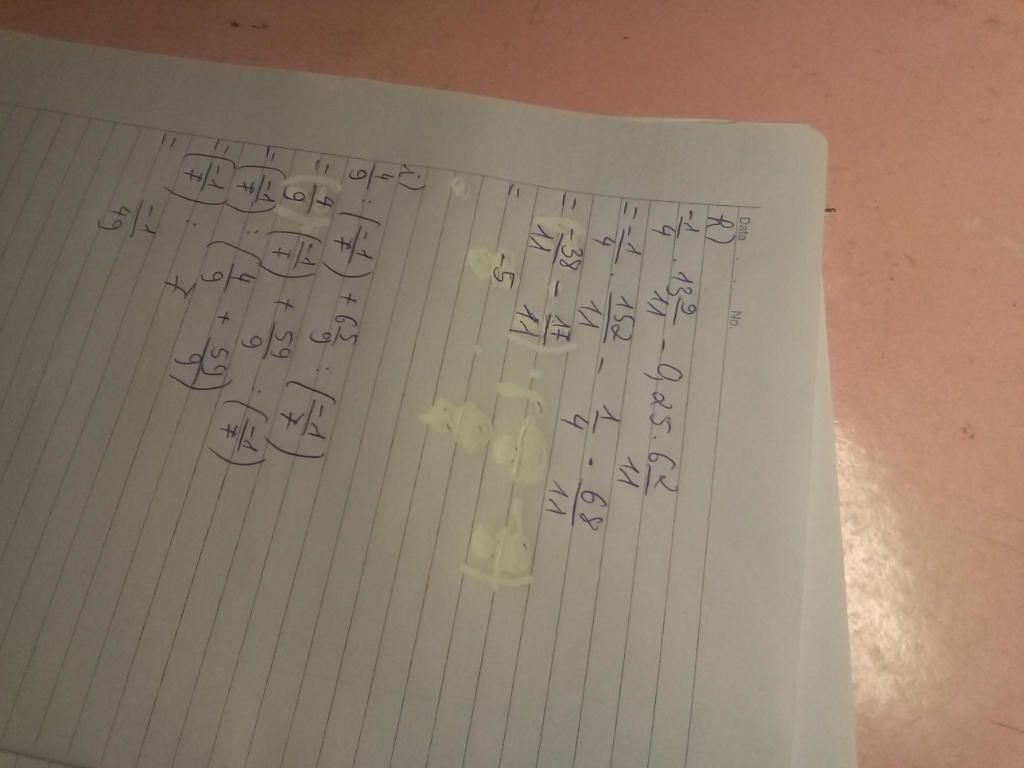 Date No.
R)
-1/4 . 13 9/11 - 0,25 . 6 2/11
= -1/4 . 152/11 - 1/4 . 68/11
= (-38/11 - 17/11)
= -5
i)
4/9 : (-1/7) + 6 5/9 : (-1/7)
= 4/9 : (-1/7) + 59/9 : (-1/7)
= (-1/7) : (4/9 + 59/9)
= (-1/7) : 7
= -1/49